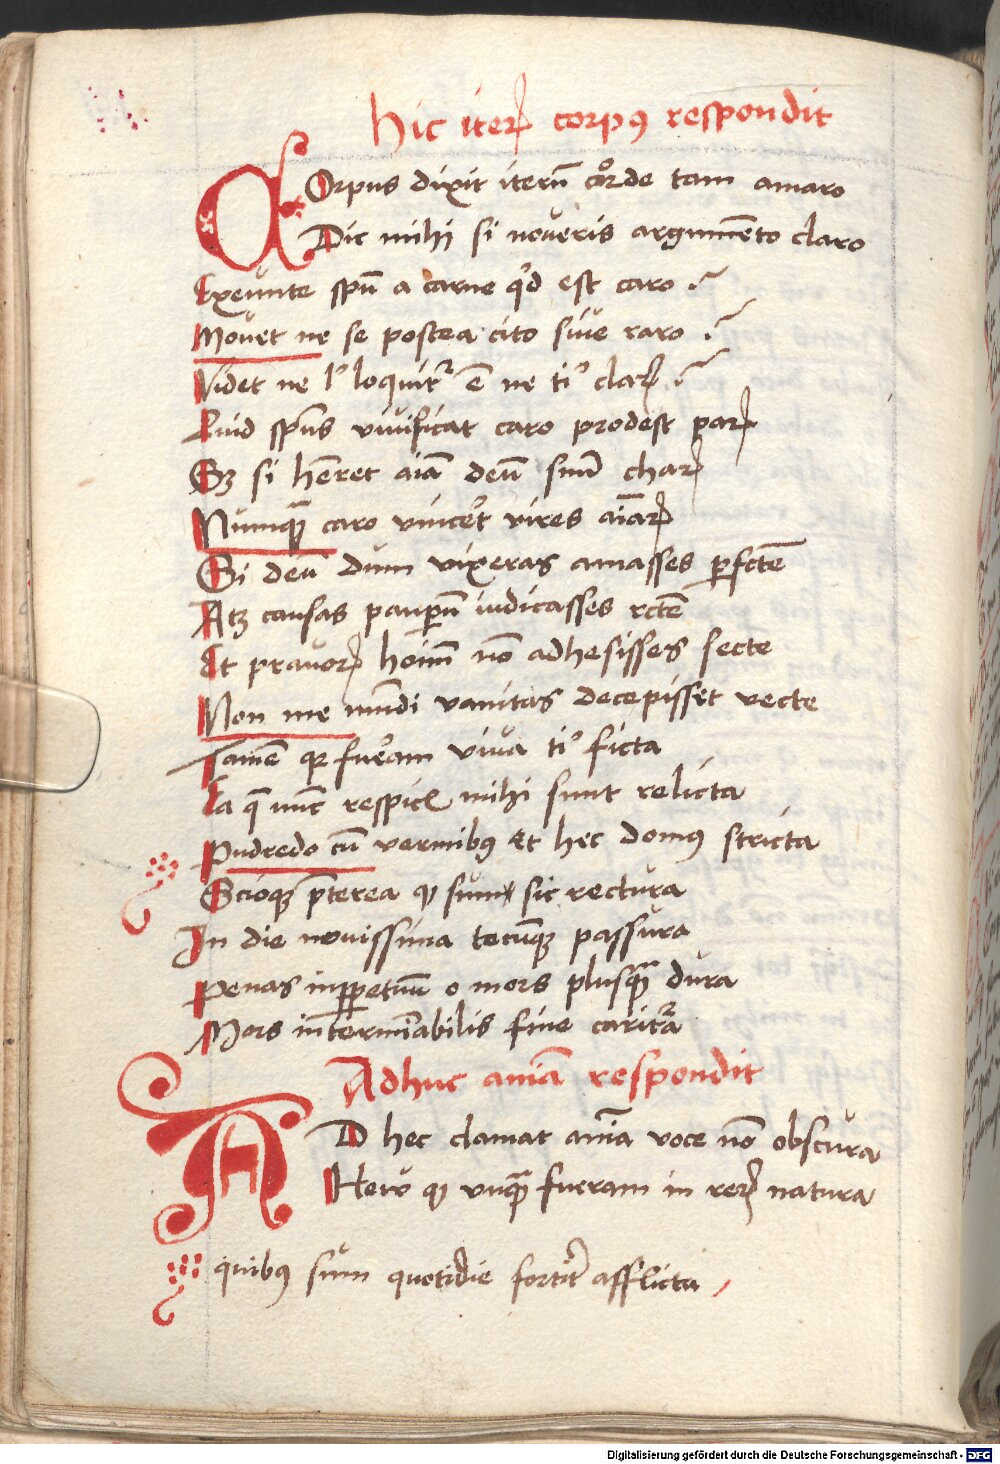 Hic iterꝝ corpꝰ respondit
COrpus dixit iterū corde tam amaro
Dic mihi si noveris argumēto claro
Exeunte spū a carne qͥd est caro ?
Movet ne se postea cito sive raro ?
Videt ne l' loquitᷣ ē ne ti' claꝝ ?
Quid spūs vivificat caro prodest paꝝ
Sꝫ si hēret aīā deū suū chaꝝ
Numqꝫ caro vinceret vires aīaꝝ
Si deū dum vixeras amasses ꝑfctē
Atqꝫ causas paupeꝝ iudicasses rctē
Et pravoꝝ hoīm nō adhesisses secte
Non me mūdi vanitas decepisset vecte
Tamē qꝛ fueram viva ti' ficta
Ea q̄ nūc respicꝭ mihi sunt relicta
Pudredo cū vermibꝰ et hec domꝰ stricta
Scioqꝫ p̄terea ꝙ sum sic rectura
In die novissima tecūqꝫ passura
Penas inꝑpetuū o mors plusqꝫ dura
Mors intermīabilis fine caritᷓa
Adhuc aniā respondit
AD hec clamat anīa voce nō obscura
Heu ꝙ unqꝫ fueram in reꝝ natura
quibꝰ sum quotidie fortitᷣ afflicta
Digitalisierung gefördert durch die Deutsche Forschungsgemeinschaft - DFG